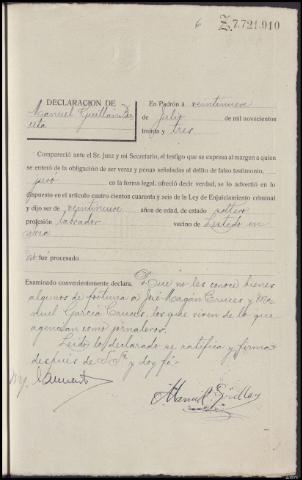 6 Z 7.721.910
DECLARACION DE
Manuel Guillan
En Padrón á veintinueve
de julio de mil novecientos
treinta y tres
Compareció ante el Sr. Juez y mi Secretario, el testigo que se expresa al margen a quien
se enteró de la obligación de ser veraz y penas señaladas al delito de falso testimonio,
juró en la forma legal, ofreció decir verdad, se le advertió en lo
dispuesto en el artículo cuatro cientos cuarenta y seis de la Ley de Enjuiciamiento criminal
y dijo ser de veintinueve años de edad, de estado soltero
profesión labrador vecino de
no fué procesado.
Examinado convenientemente declara. Que no les conoce bienes
algunos de fortuna a José Magán Cruces y Ma-
nuel García Cruces, los que viven de lo que
agencian como jornaleros.
Leído lo declarado se ratifica y firma
después de S.Sª y doy fé.
Manuel Guillan